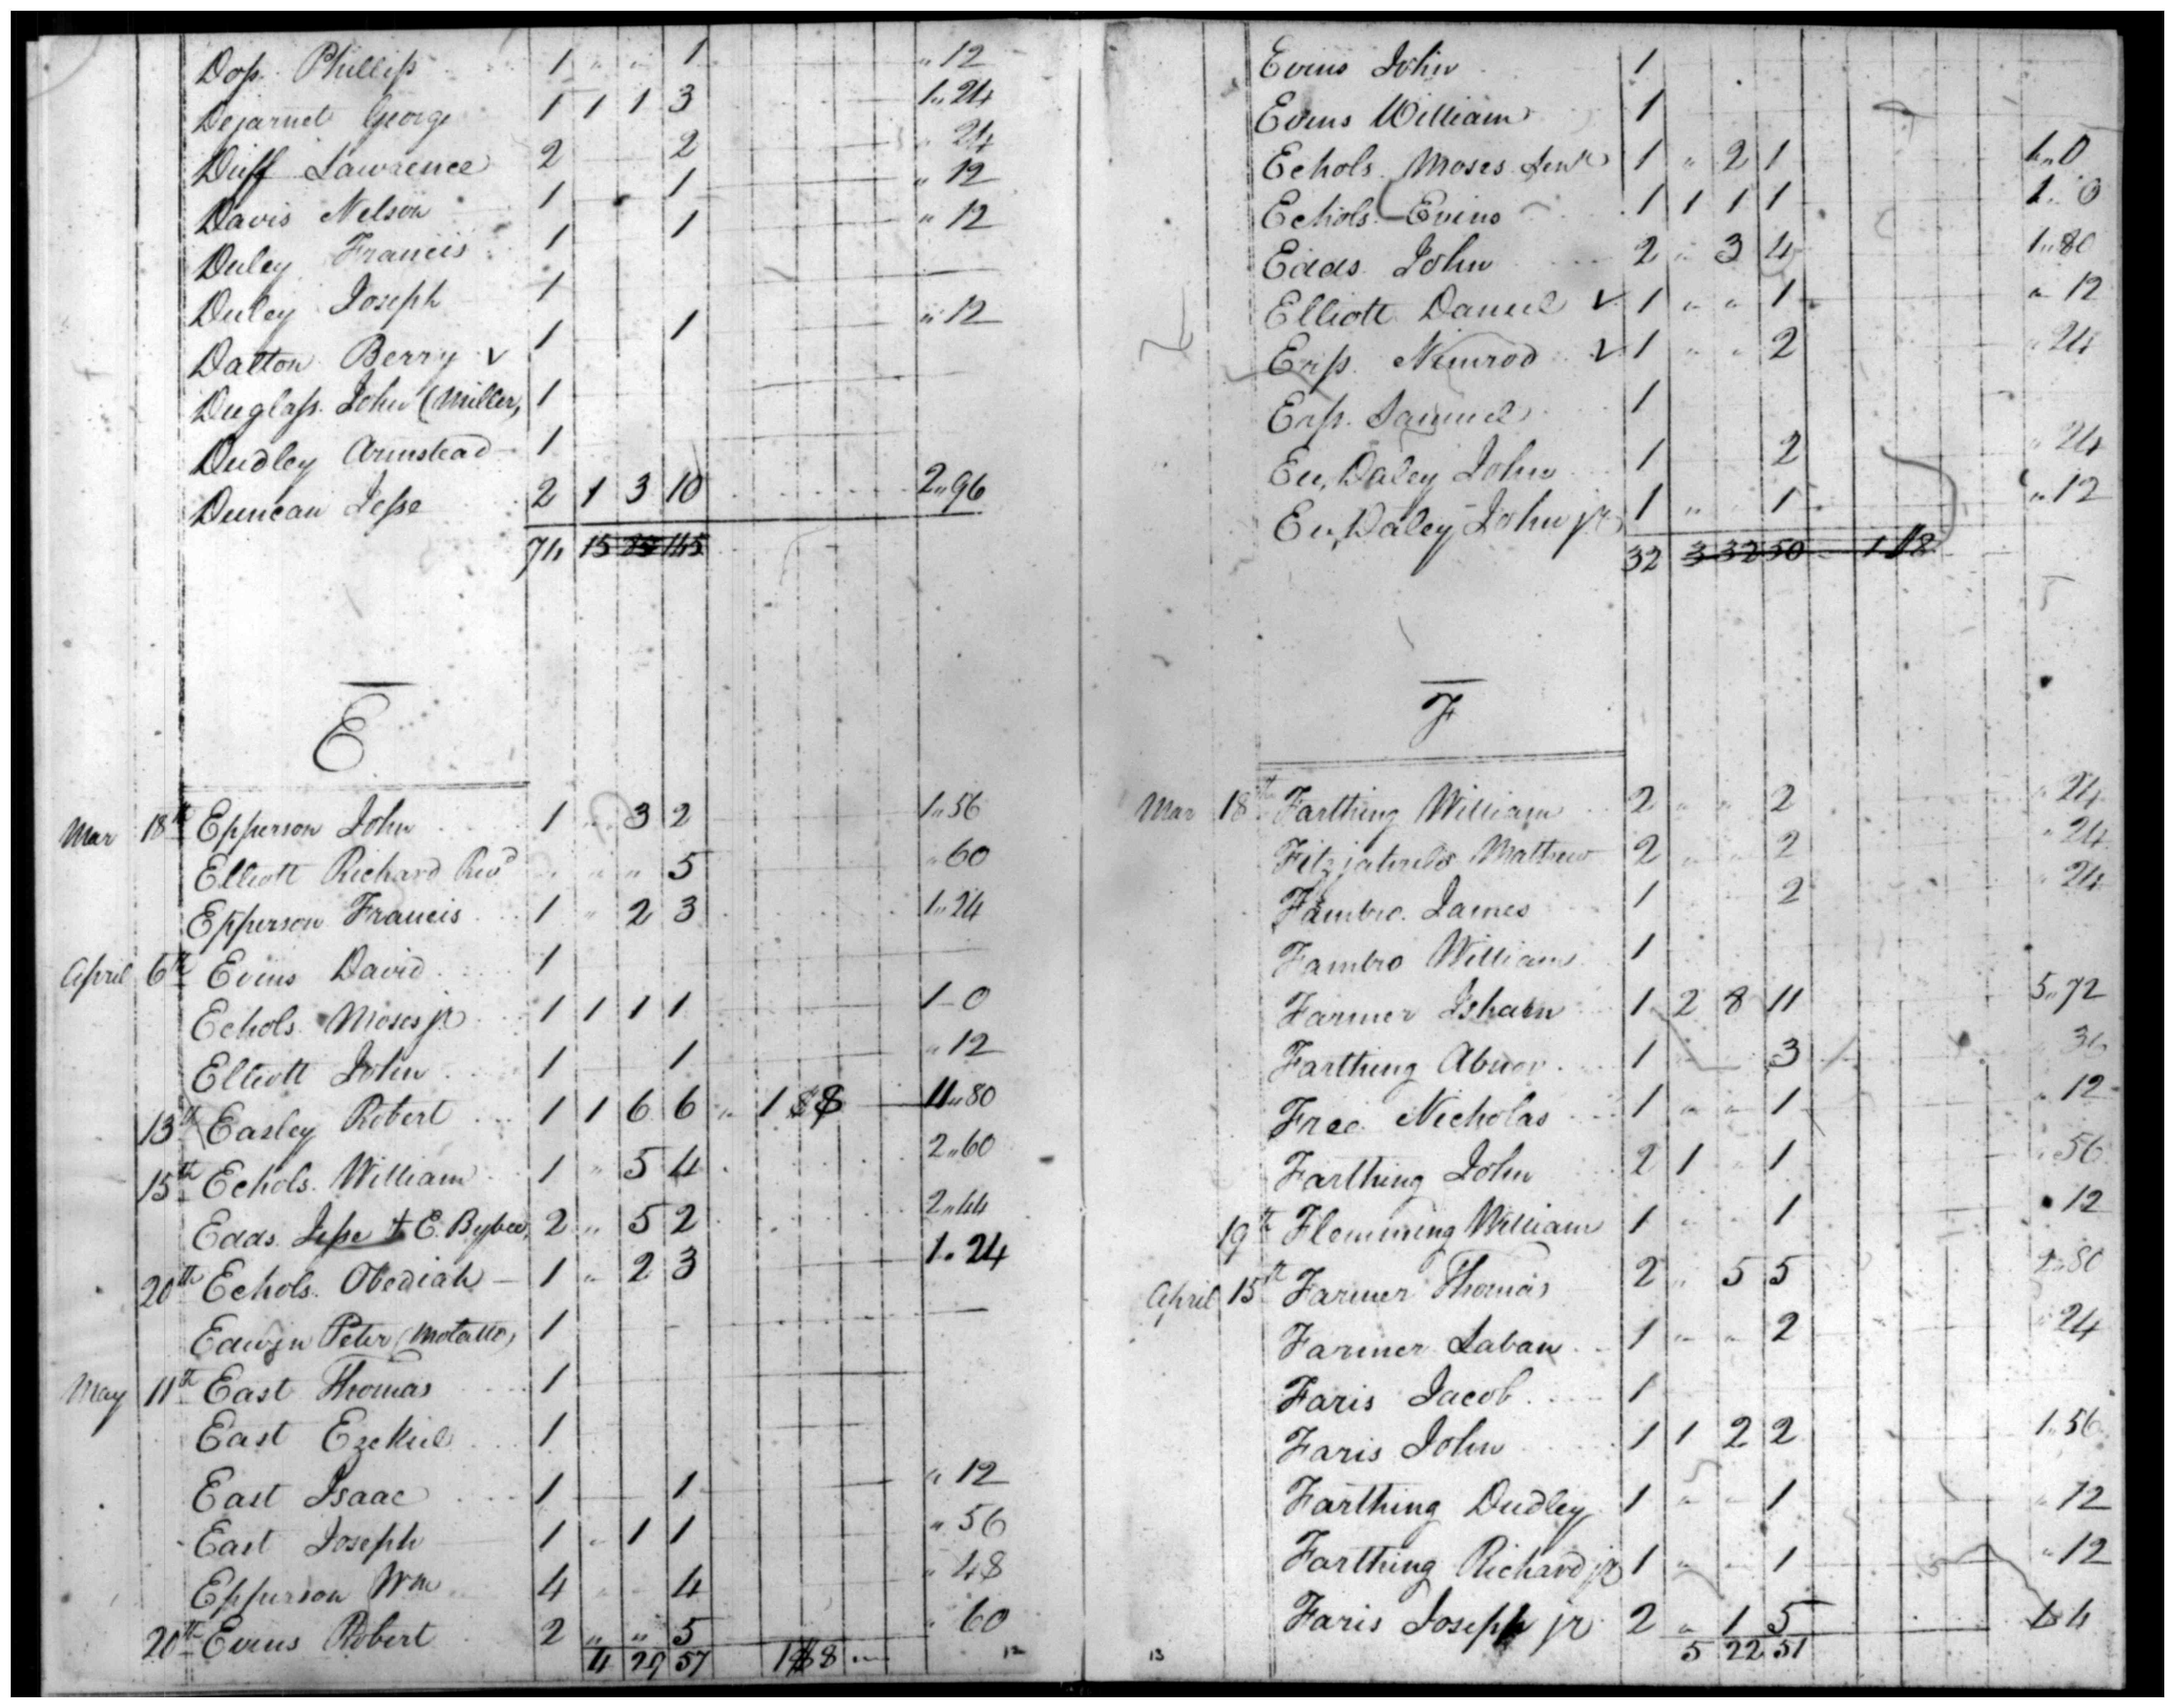 Doss Phillip 1 " " 1 " 12
Dejarnet George 1 1 1 3 1 " 24
Duff Lawrence 2 2 " 24
Davis Nelson 1 1 " 12
Duley Francis 1 1 " 12
Duley Joseph 1
Dalton Berry v 1 1 " 12
Duglass John (Miller) 1
Dudley Armstead 1
Duncan Jesse 2 1 3 10 2 " 96
74 15 145
E
Mar 18th Epperson John 1 " 3 2 1 " 56
Elliott Richard Revd " " " 5 " 60
Epperson Francis 1 " 2 3 1 " 24
April 6th Evins David 1
Echols Moses jr 1 1 1 1 1 0
Elliott John 1 1 " 12
13th Easley Robert 1 1 6 6 " 1 $8 11 " 80
15th Echols William 1 " 5 4 2 " 60
Edds Jesse & E. Bybee 2 " 5 2 2 " 44
20th Echols Obediah 1 " 2 3 1 " 24
Edwin Peter (Molatto) 1
May 11th East Thomas 1
East Ezekiel 1
East Isaac 1 1 " 12
East Joseph 1 " 1 1 " 56
Epperson Wm 4 " 4 " 48
20th Evins Robert 2 " " 5 " 60
4 29 57
12
Evins John 1
Evins William 1
Echols Moses Senr 1 " 2 1 1 " 0
Echols Evins 1 1 1 1 1 " 0
Edds John 2 " 3 4 1 " 80
Elliott Daniel v 1 " " 1 " 12
Erss Nimrod v 1 " " 2 " 24
Erss Samuel 1
Eu,Daley John 1 2 " 24
Eu,Daley John jr 1 " 1 " 12
32 3 32 50
F
Mar 18th Farthing William 2 " " 2 " 24
Mathew 2 " " 2 " 24
Fambro James 1 2 " 24
Fambro William 1
Farmer Isham 1 2 8 11 5 " 72
Farthing Abner 1 " 3 " 36
Free Nicholas 1 " " 1 " 12
Farthing John 2 1 " 1 " 56
19th Flemming William 1 " 1 12
April 15th Farmer Thomas 2 " 5 5 2 " 80
Farmer Laban 1 " " 2 " 24
Faris Jacob 1
Faris John 1 1 2 2 1 " 56
Farthing Dudley 1 " 1 " 12
Farthing Richard jr 1 " 1 " 12
Faris Joseph jr 2 " 1 5
5 22 51
13